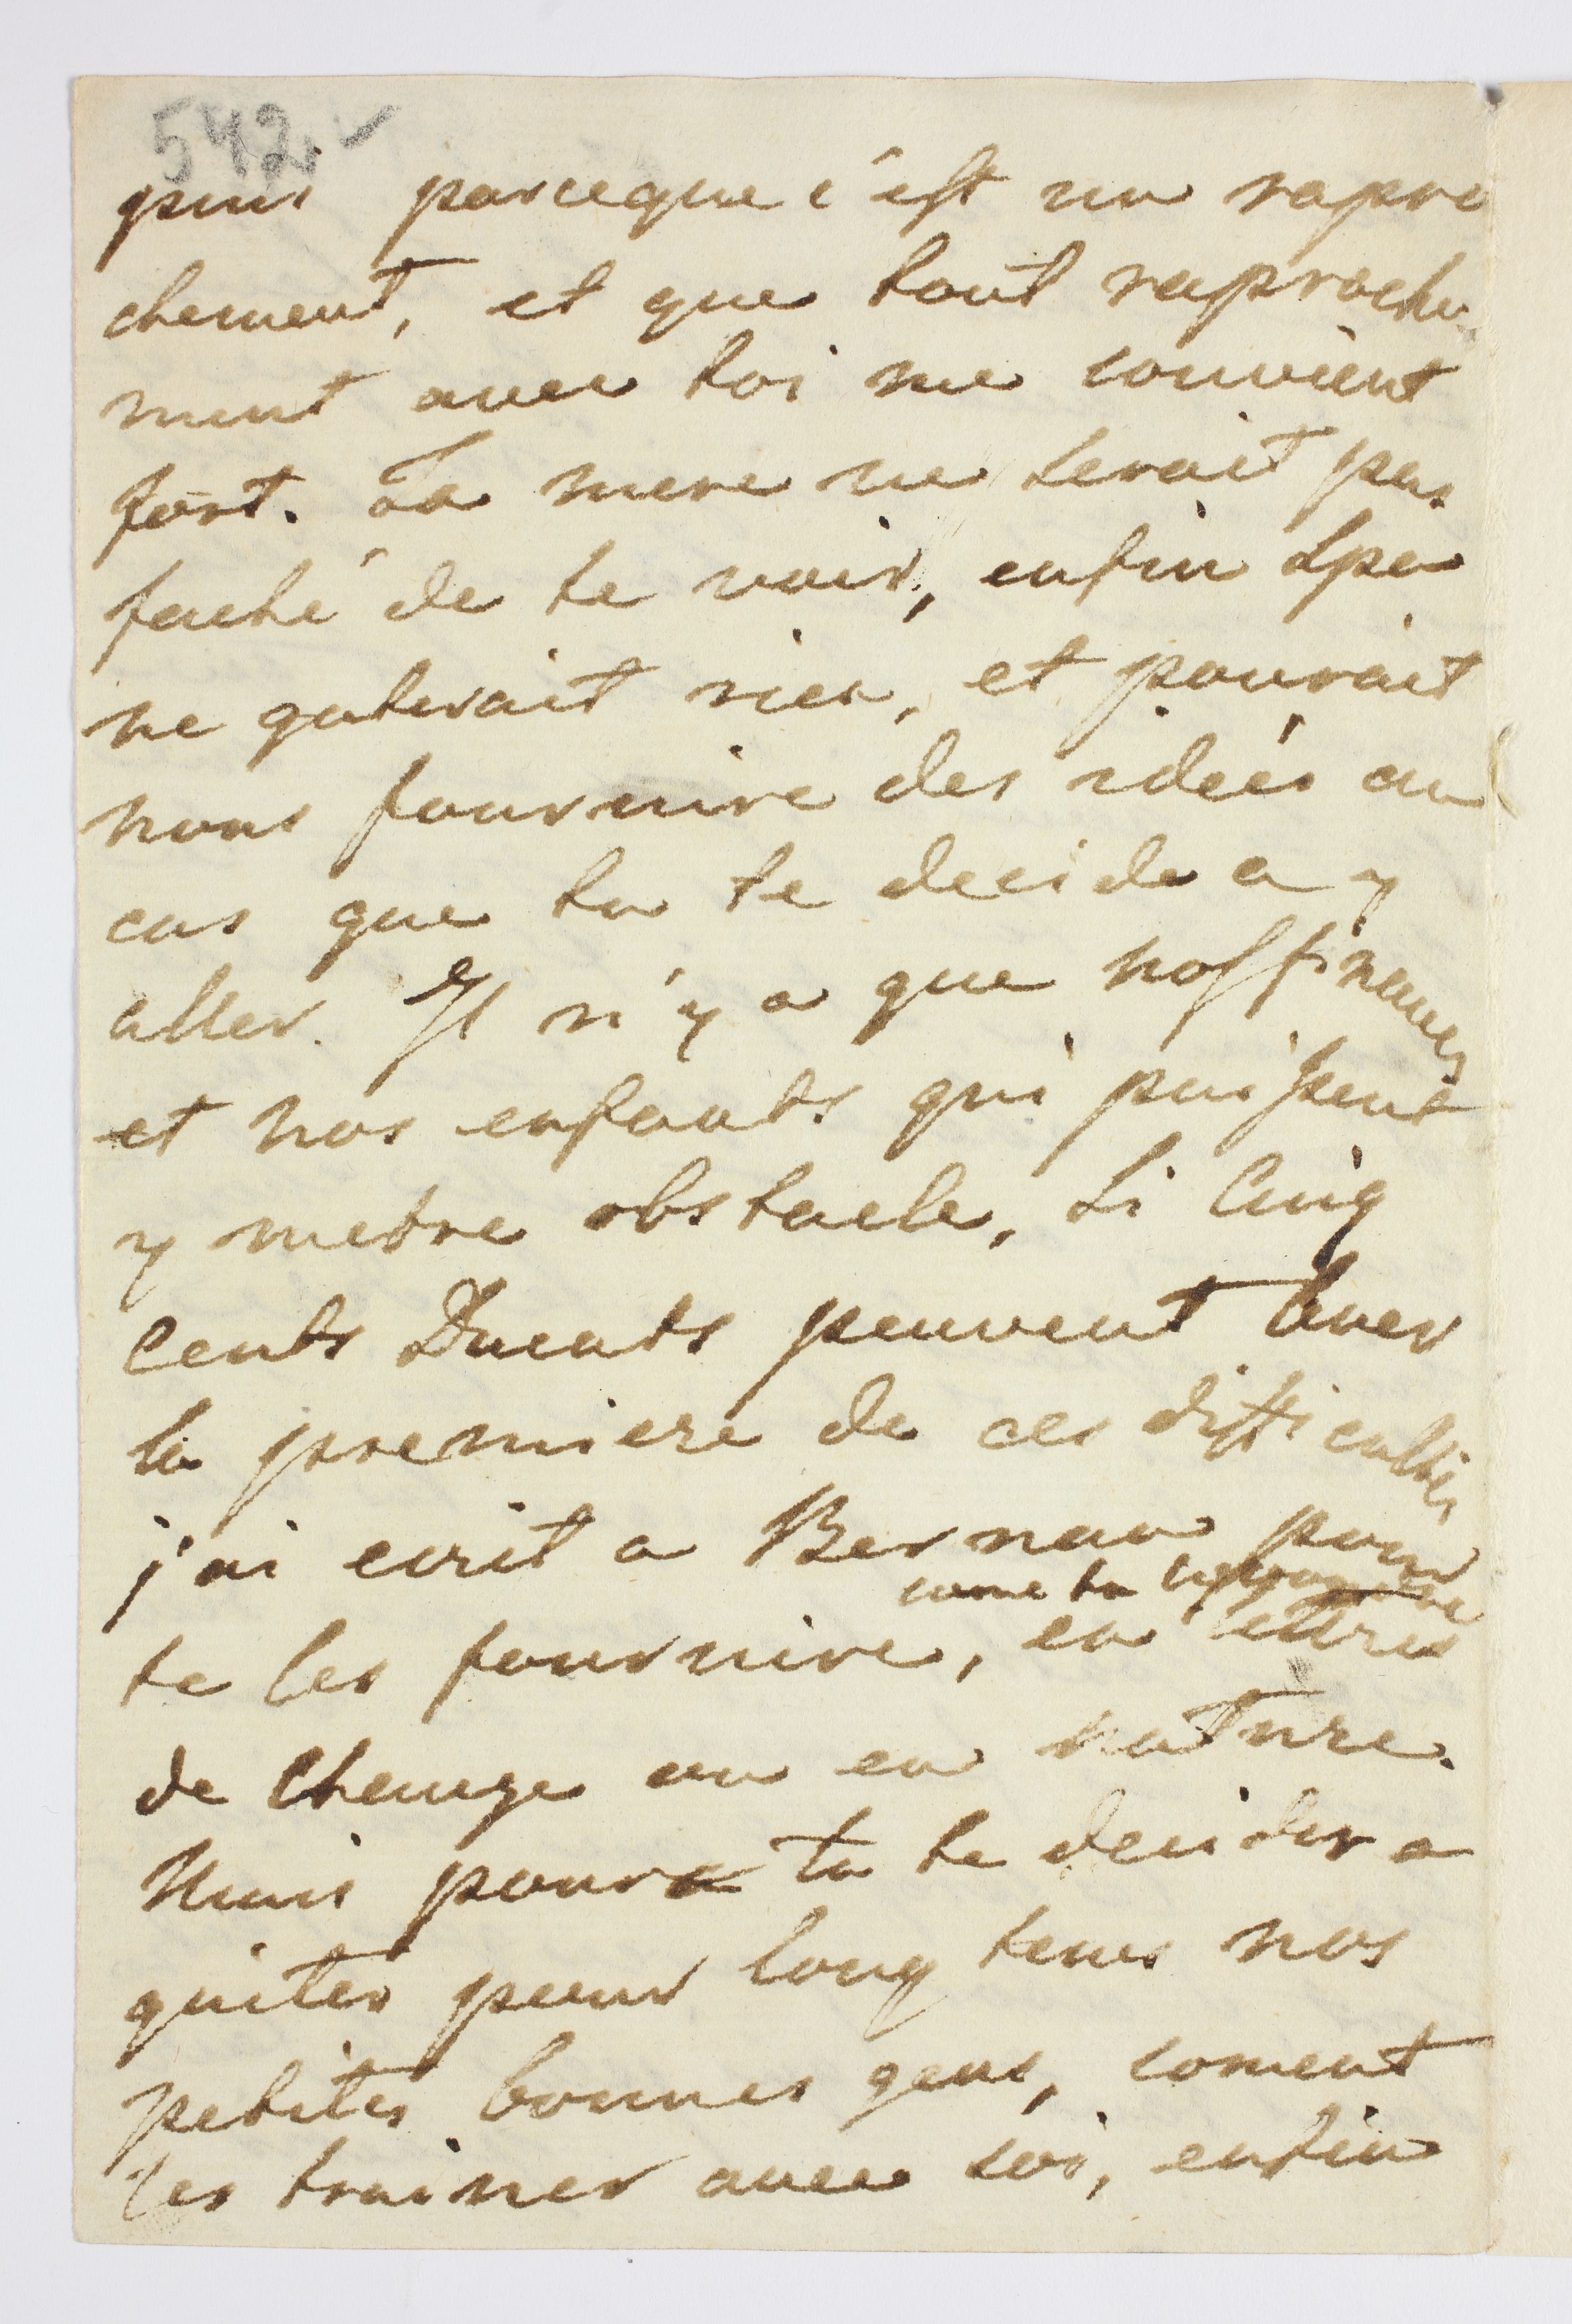 542.
puis parceque c'est un rapro
chement, et que tout rapproche
ment avec toi me convient
fort. Ta mere ne serait pas
faché de te voir, enfin Spa
ne gaterait rien, et pourait
nous fournire des ideés au
cas que tu te decide a y
aller. Il n'y a que nos finances
et nos enfants qui puissent
y metre obstacle, si Cinq
Cents Ducats peuvent lever
la premiere de ces difficultés
j'ai ecrit a Bernau pour
come tu
te les fournire, en lettres
de Change ou en nature.
Mais poura tu te decider a
quiter pour long tems nos
petites bonnes gens, coment
les trainer avec soi, enfin